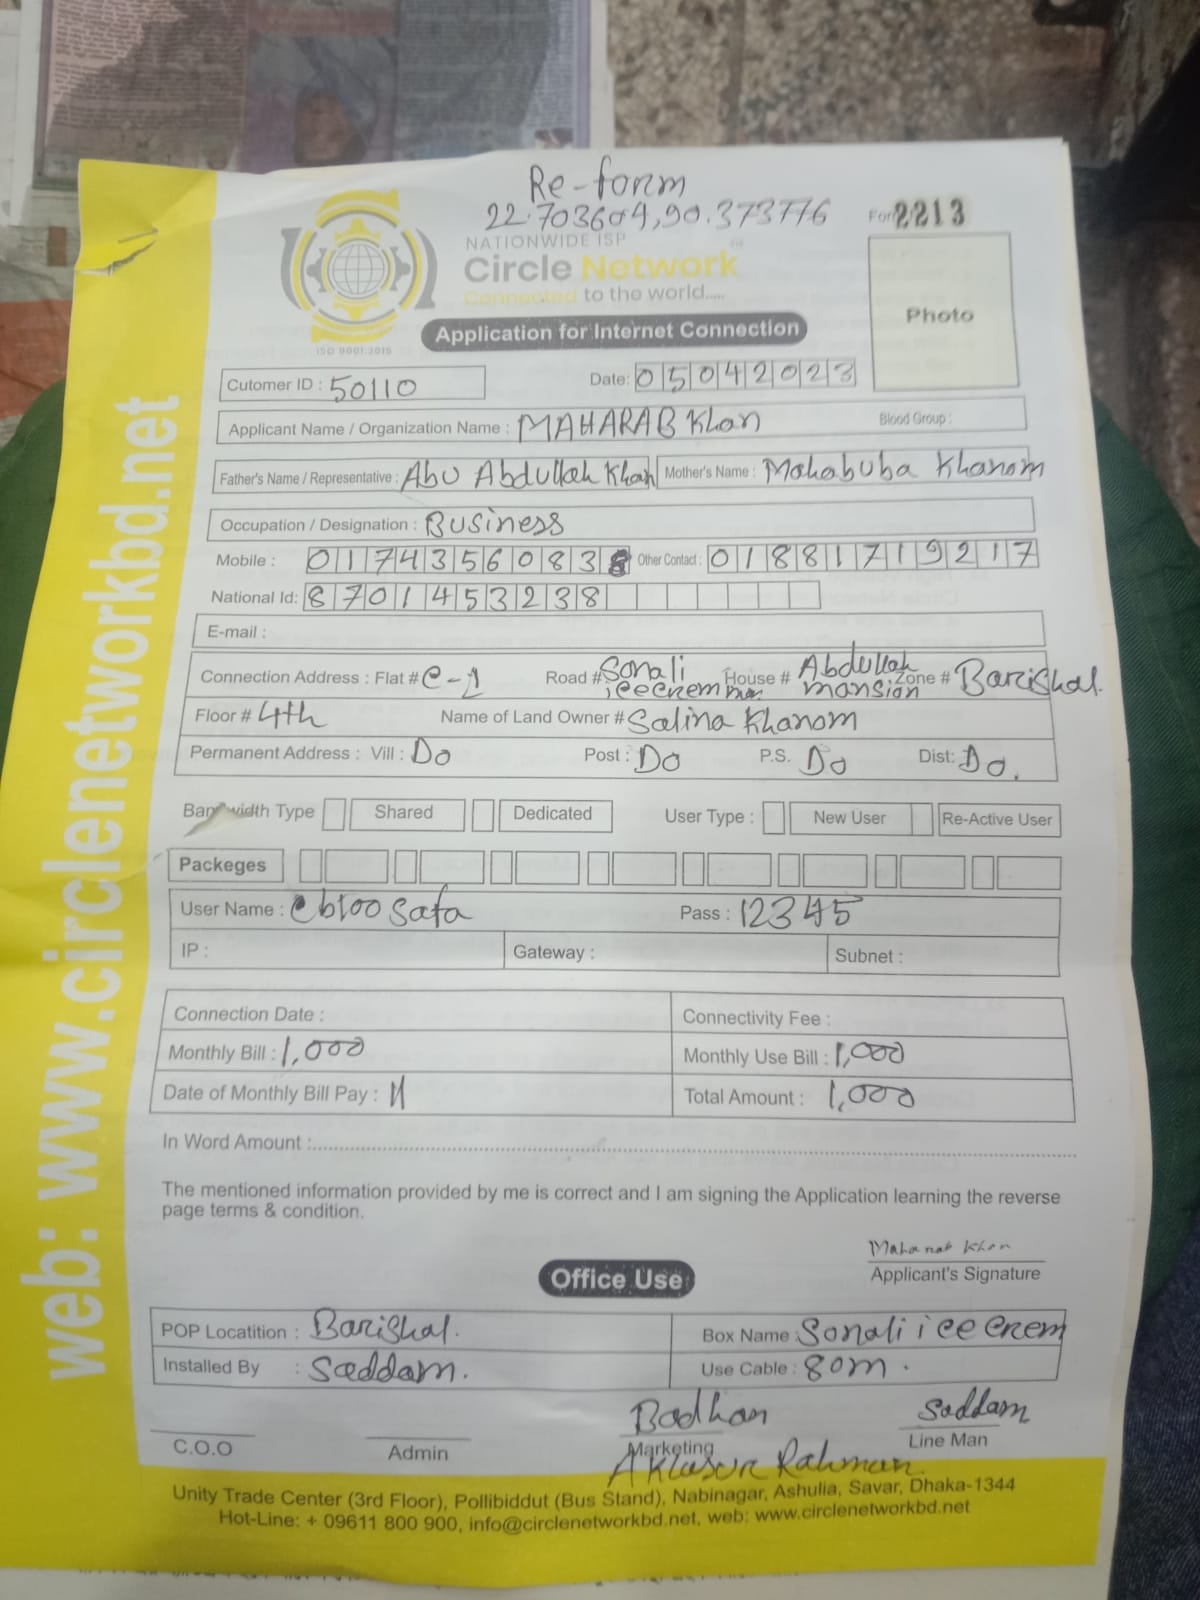 Re-form
22.703604,90.373776
NATIONWIDE ISP
Form 2213
Circle Network
Connected to the world.....
Photo
ISO 9001:2015
Application for Internet Connection
Cutomer ID : 50110
Date: 05042023
Applicant Name / Organization Name : MAHARAB Khan Blood Group :
Father's Name / Representative : Abu Abdullah Khan Mother's Name : Mahabuba Khanom
Occupation / Designation : Business
Mobile : 0174356083 Other Contact : 01881719217
National Id: 8701453238
E-mail :
Connection Address : Flat # C-1 Road # Sonali House # Abdullah mansion Zone # Barishal.
Floor # 4th Name of Land Owner # Salina Khanom
Permanent Address : Vill : Do Post : Do P.S. Do Dist: Do.
Bandwidth Type Shared Dedicated User Type : New User Re-Active User
Packeges
User Name : cbl00 safa Pass : 12345
IP : Gateway : Subnet :
Connection Date : Connectivity Fee :
Monthly Bill : 1,000 Monthly Use Bill : 1,000
Date of Monthly Bill Pay : 11 Total Amount : 1,000
In Word Amount :
The mentioned information provided by me is correct and I am signing the Application learning the reverse
page terms & condition.
Maharab Khan
Applicant's Signature
Office Use
POP Locatition : Barishal. Box Name : Sonali ice crem
Installed By : Saddam. Use Cable : 80m.
Badhan Saddam
C.O.O Admin Marketing Line Man
Rahman
Unity Trade Center (3rd Floor), Pollibiddut (Bus Stand), Nabinagar, Ashulia, Savar, Dhaka-1344
Hot-Line: + 09611 800 900, info@circlenetworkbd.net, web: www.circlenetworkbd.net
web: www.circlenetworkbd.net